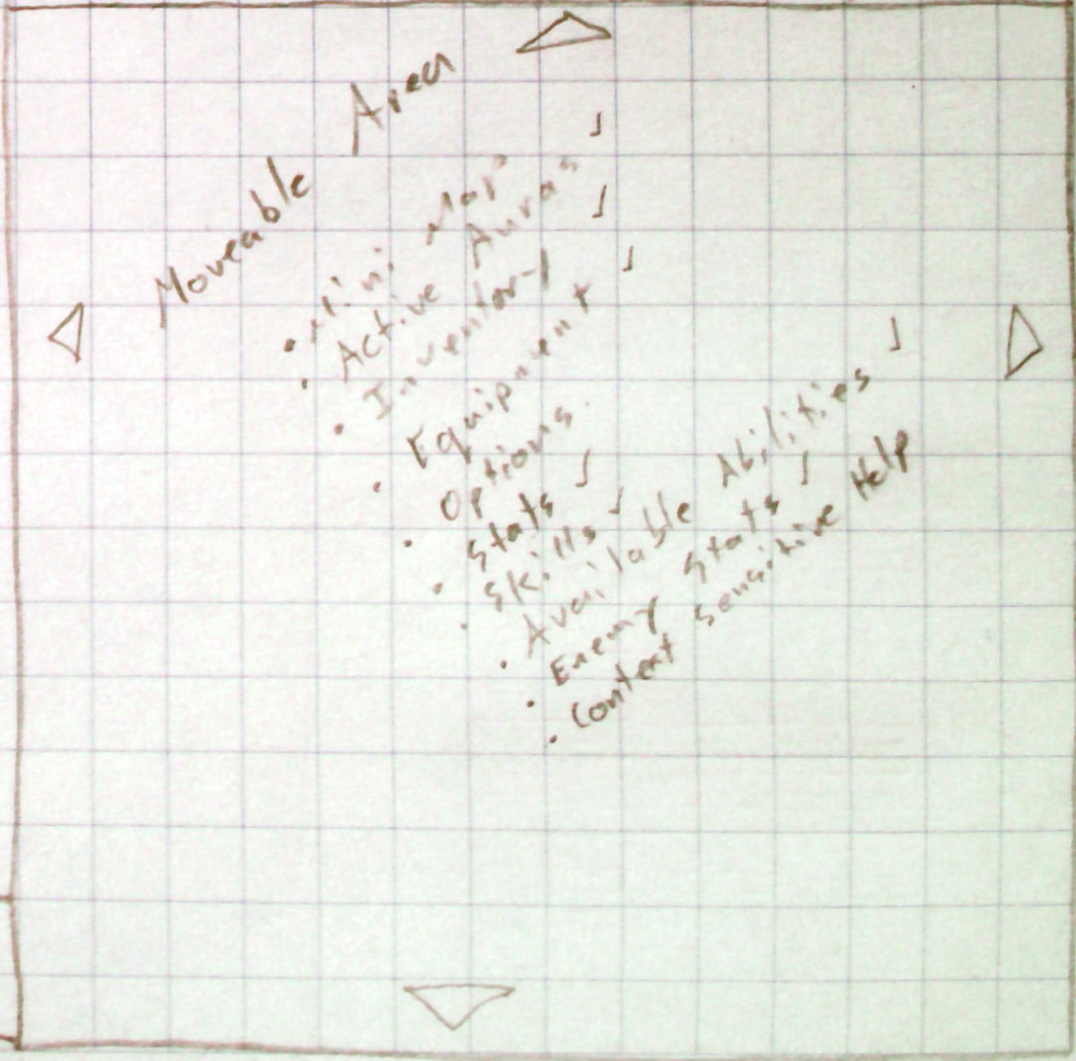 Moveable Area
• Mini Map
• Active Auras
• Inventory
• Equipment
• Options
• Stats
• Skills
• Available Abilities
• Enemy Stats
• Context Sensitive Help